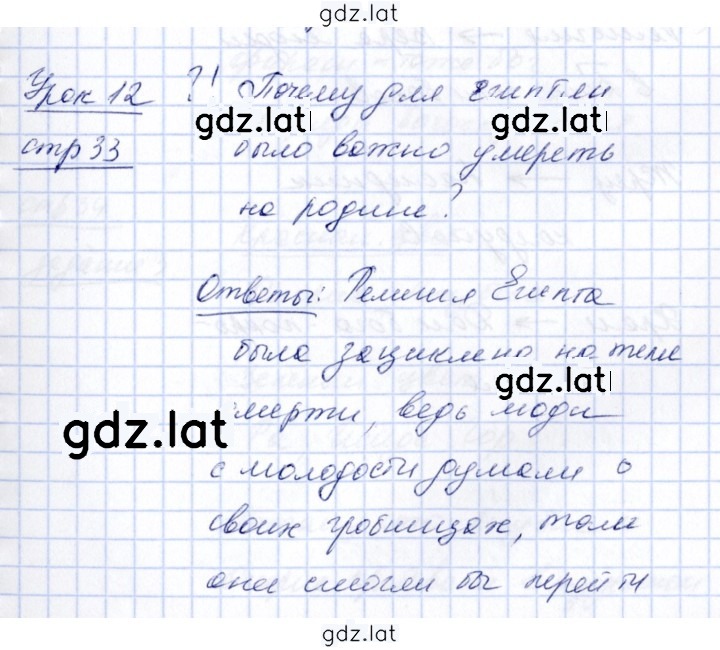 gdz.lat
Урок 12 ?! Почему для египтян
gdz.lat gdz.lat
стр 33 было важно умереть
на родине?
Ответы: Религия Египта
была зациклена на теме
gdz.lat
gdz.lat смерти, ведь люди
с молодости думали о
своих гробницах, там
они смогли бы перейти
gdz.lat